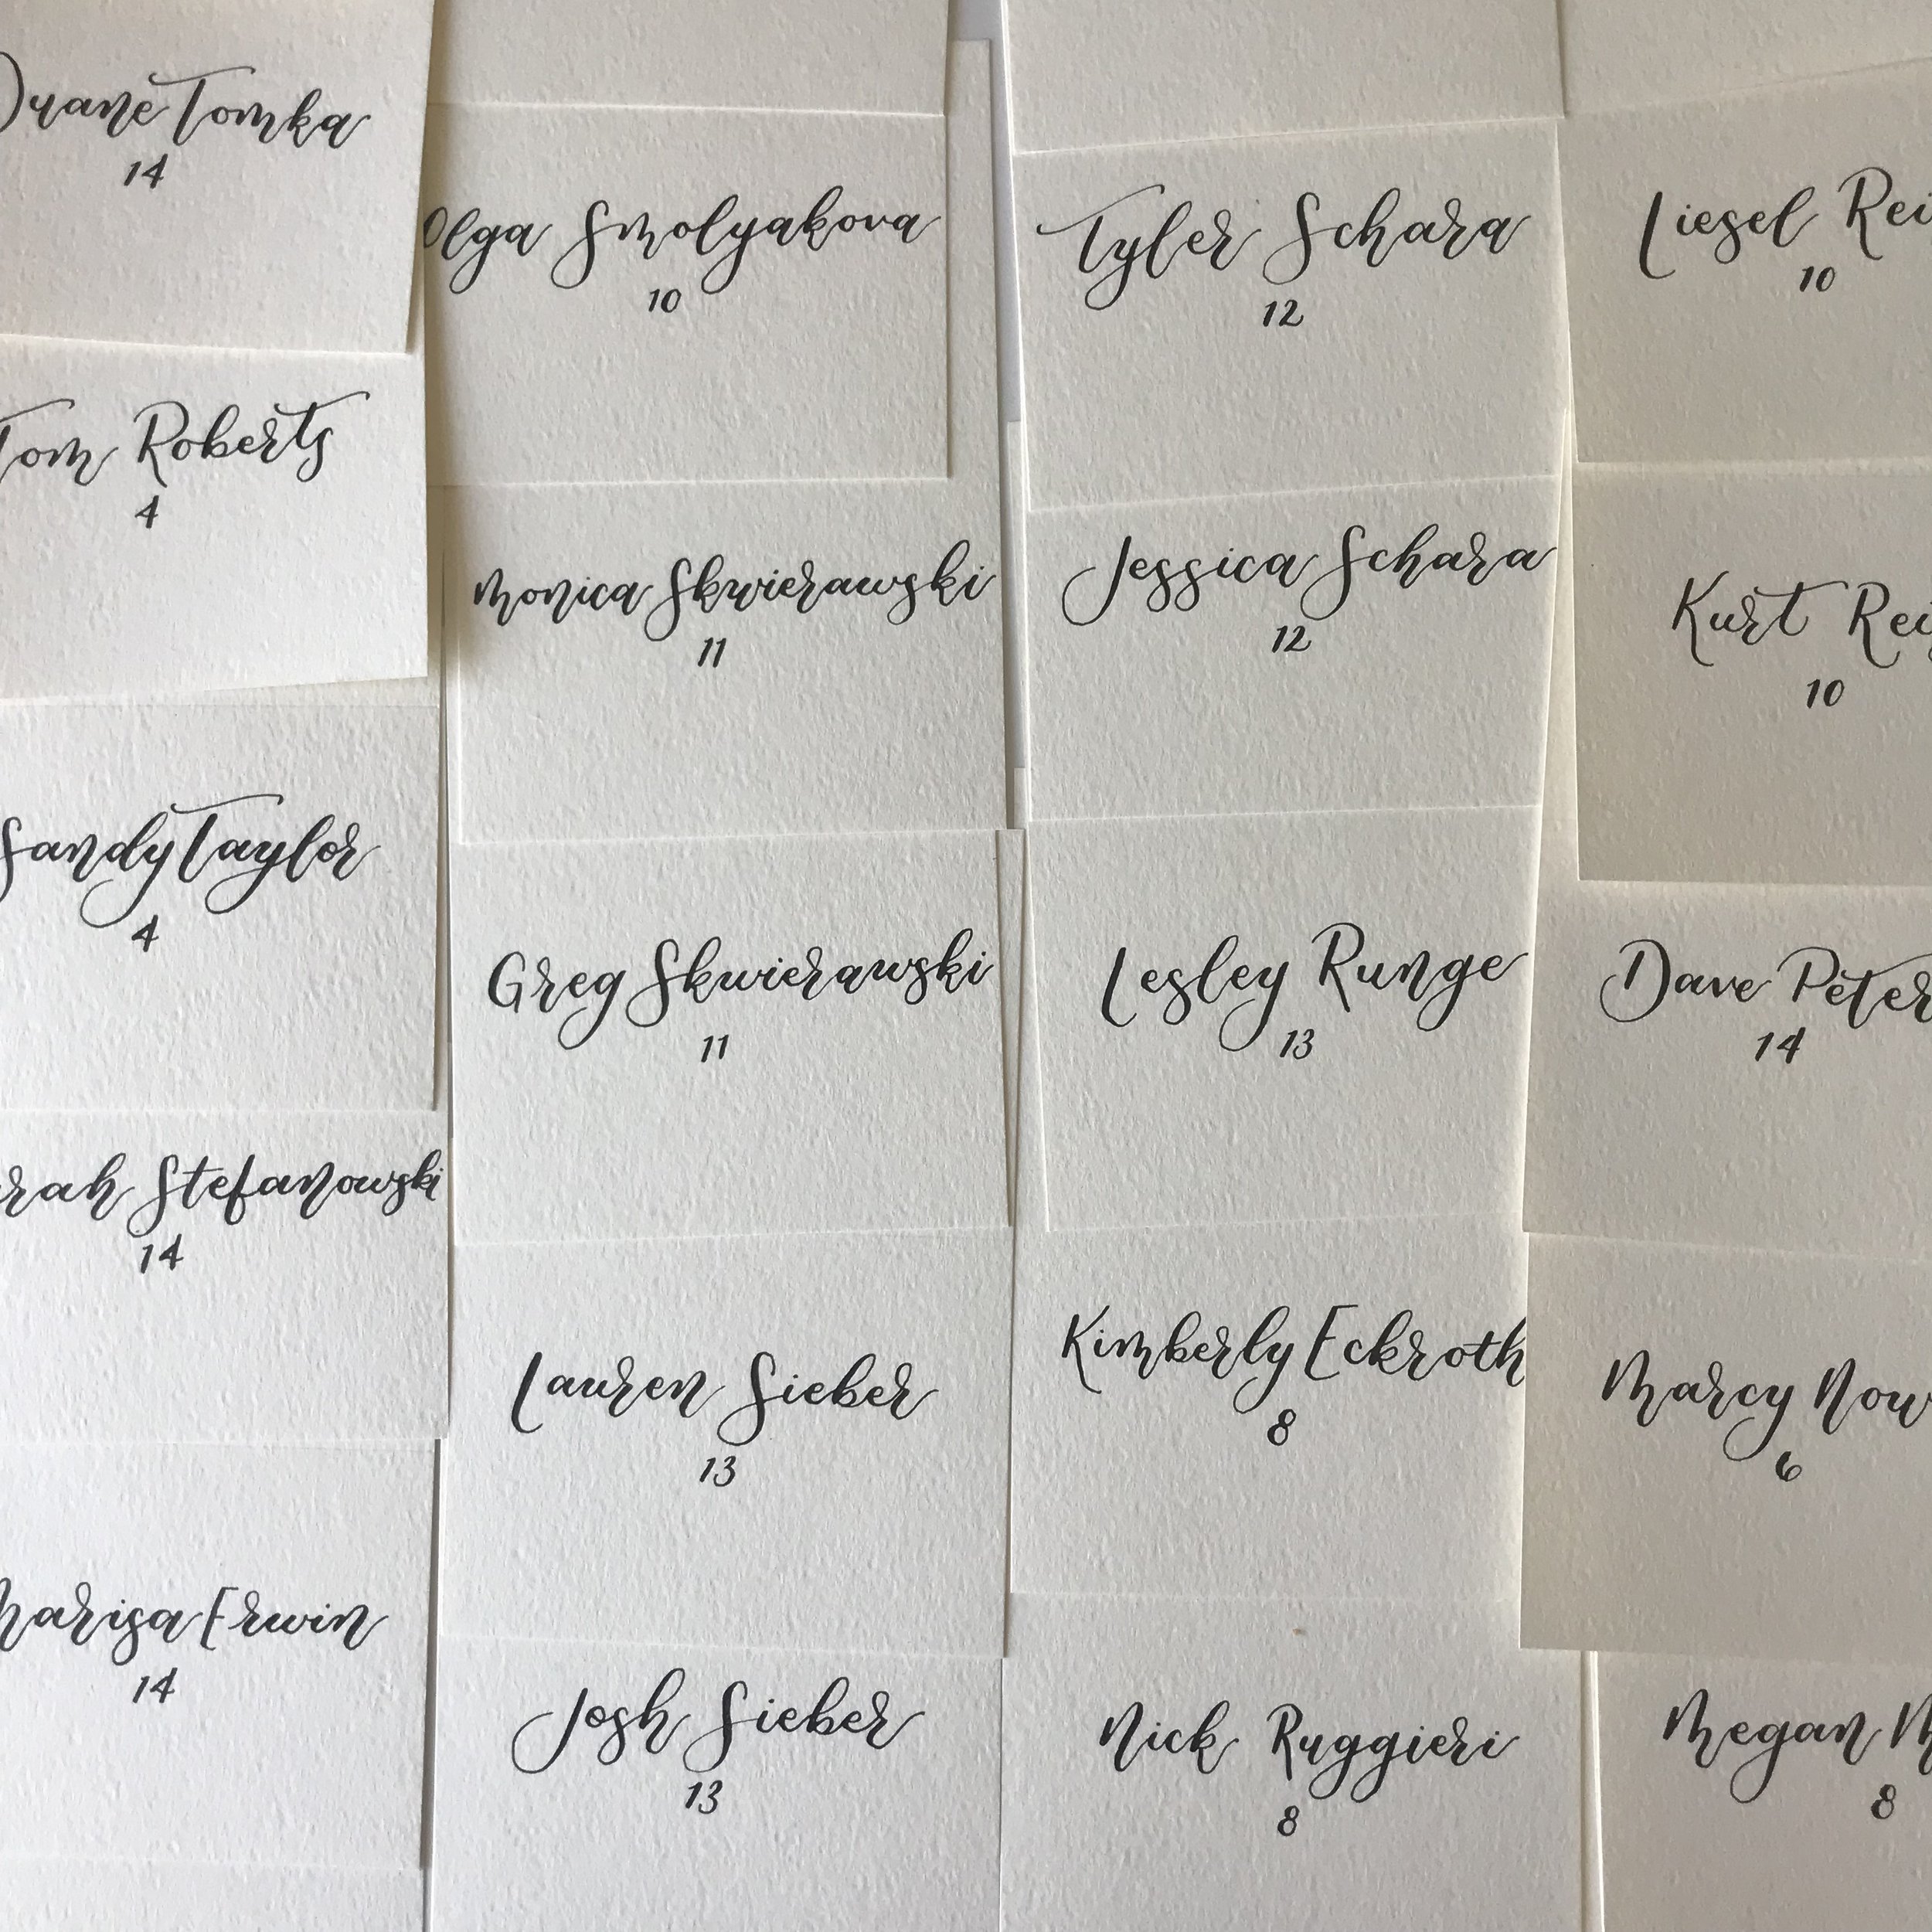 Duane Tomka
14
Tom Roberts
4
Sandy Taylor
4
Stefanowski
14
Marisa Erwin
14
Olga Smolyakova
10
Monica Skwierawski
11
Greg Skwierawski
11
Lauren Sieber
13
Josh Sieber
13
Tyler Schara
12
Jessica Schara
12
Lesley Runge
13
Kimberly Eckroth
8
Nick Ruggieri
8
Liesel
10
Kurt
10
Dave
14
Marcy
6
Megan
8